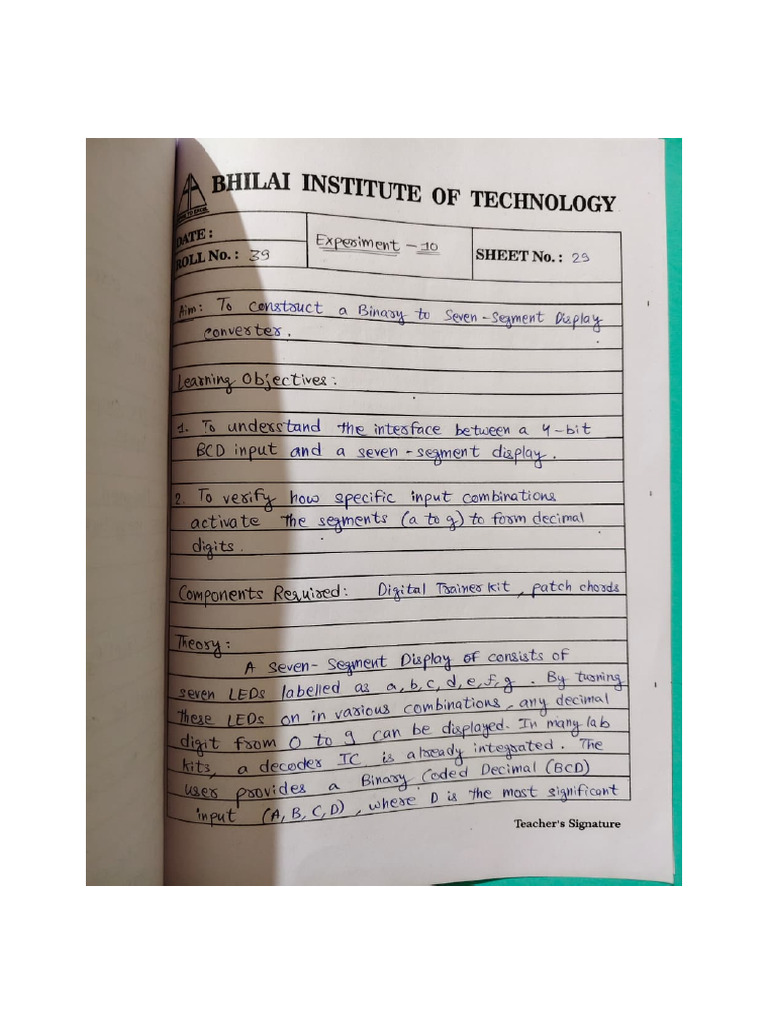 BHILAI INSTITUTE OF TECHNOLOGY
DATE :
ROLL No. : 39
Experiment - 10
SHEET No. : 29
Aim: To construct a Binary to Seven-Segment Display
converter.
Learning Objectives :
1. To understand the interface between a 4-bit
BCD input and a seven-segment display.
2. To verify how specific input combinations
activate the segments (a to g) to form decimal
digits.
Components Required: Digital Trainer kit, patch chords
Theory :
A Seven-Segment Display of consists of
seven LEDs labelled as a, b, c, d, e, f, g. By turning
these LEDs on in various combinations, any decimal
digit from 0 to 9 can be displayed. In many lab
kits, a decoder IC is already integrated. The
user provides a Binary Coded Decimal (BCD)
input (A, B, C, D), where D is the most significant
Teacher's Signature